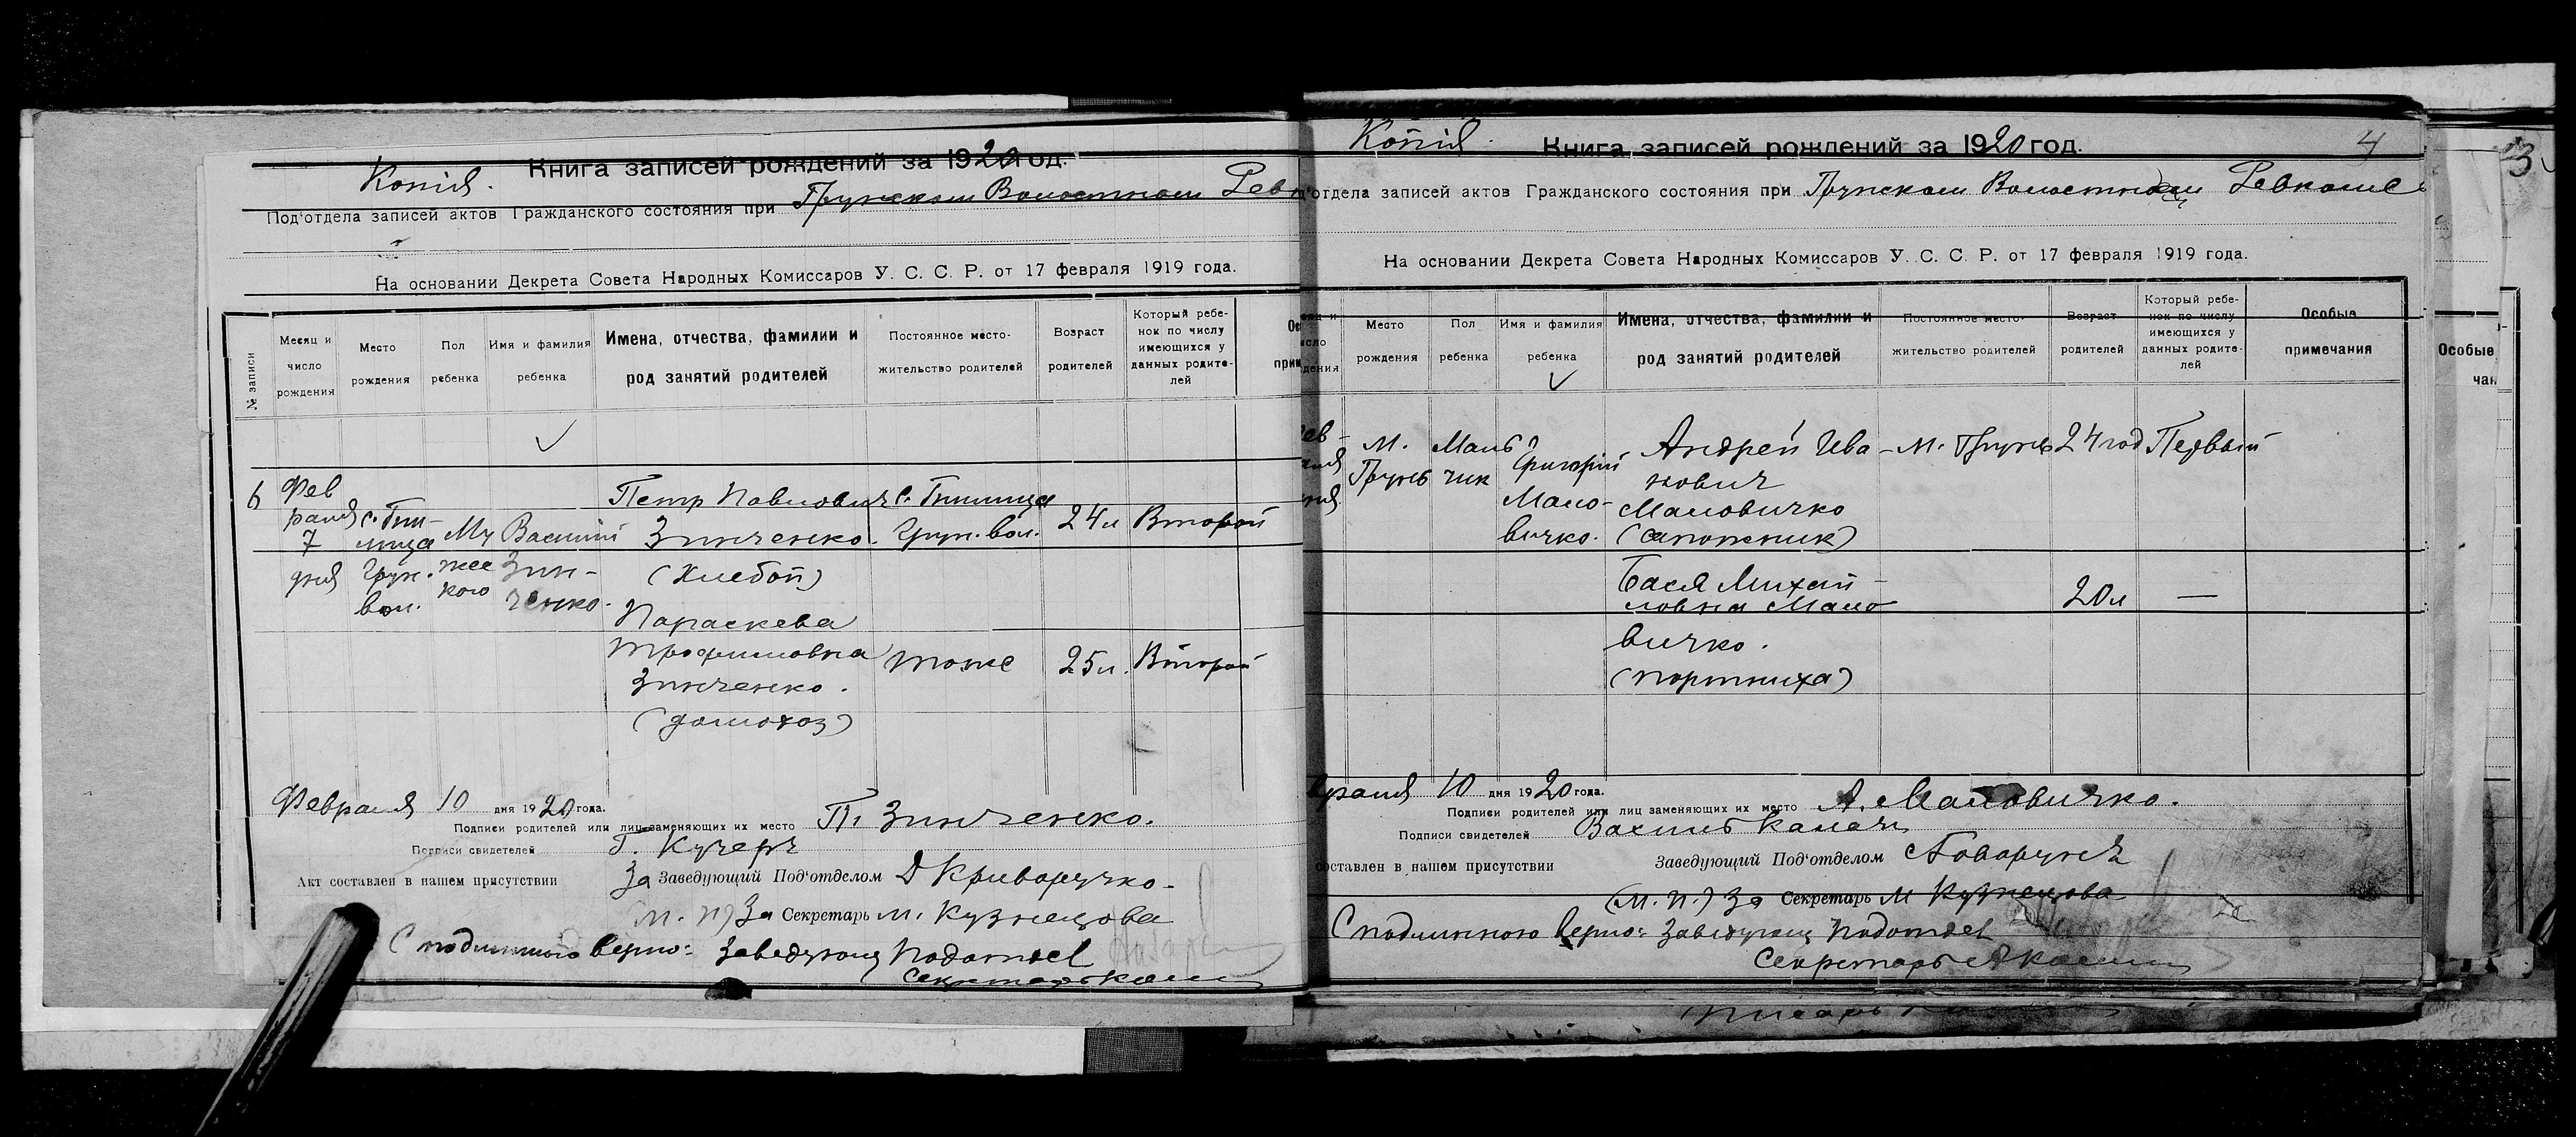 Копія.
Книга записей рождений за 1920 год.
Под'отдела записей актов Гражданского состояния при Грунском Волостном Рев
На основании Декрета Совета Народных Комиссаров У. С. С. Р. от 17 февраля 1919 года.
№ записи
Месяц и число рождения
Место рождения
Пол ребенка
Имя и фамилия ребенка
Имена, отчества, фамилии и род занятий родителей
Постоянное место-жительство родителей
Возраст родителей
Который ребе-нок по числу имеющихся у данных родите-лей
Ос
прим
6
Фев
раля
7
дня
Грун.
вол.
Му
жес
кого
Василий
Зин-
ченко.
Петр Павлович
Зинченко.
(Хлебоп)
Параскева
Трофимовна
Зинченко.
(домохоз)
Грун. вол.
тоже
24 л
25 л.
Второй
Второй
Февраля 10 дня 1920 года.
Подписи родителей или лиц заменяющих их место П. Зинченко.
Подписи свидетелей Г. Кучеръ
Акт составлен в нашем присутствии За Заведующий Под'отделом Д Криворучко.
(М. П) За Секретарь М. Кузнецова
С подлинного верно: Заведующ Подотдел
Секретарь
Копія.
Книга записей рождений за 1920 год.
4
отдела записей актов Гражданского состояния при Грунском Волостном Ревкоме
На основании Декрета Совета Народных Комиссаров У. С. С. Р. от 17 февраля 1919 года.
Место рождения
Пол ребенка
Имя и фамилия ребенка
Имена, отчества, фамилии и род занятий родителей
Постоянное место-жительство родителей
Возраст родителей
Который ребе-нок по числу имеющихся у данных родите-лей
Особые примечания
М.
Грунь
Маль
чик
Григорій
Мало-
вичко.
Андрей Ива-
нович
Маловичко
(сапожник)
Бася Михай-
ловна Мало
вичко.
(портниха)
М. Грунь
24 год
20 л
Первый
—
враля 10 дня 1920 года.
Подписи родителей или лиц заменяющих их место А. Маловичко.
Подписи свидетелей
составлен в нашем присутствии Заведующий Под'отделом
(М. П.) За Секретарь М Кузнецова
С подлинною верно: Заведующ Подотдел
Секретарь
3
Особые
чан